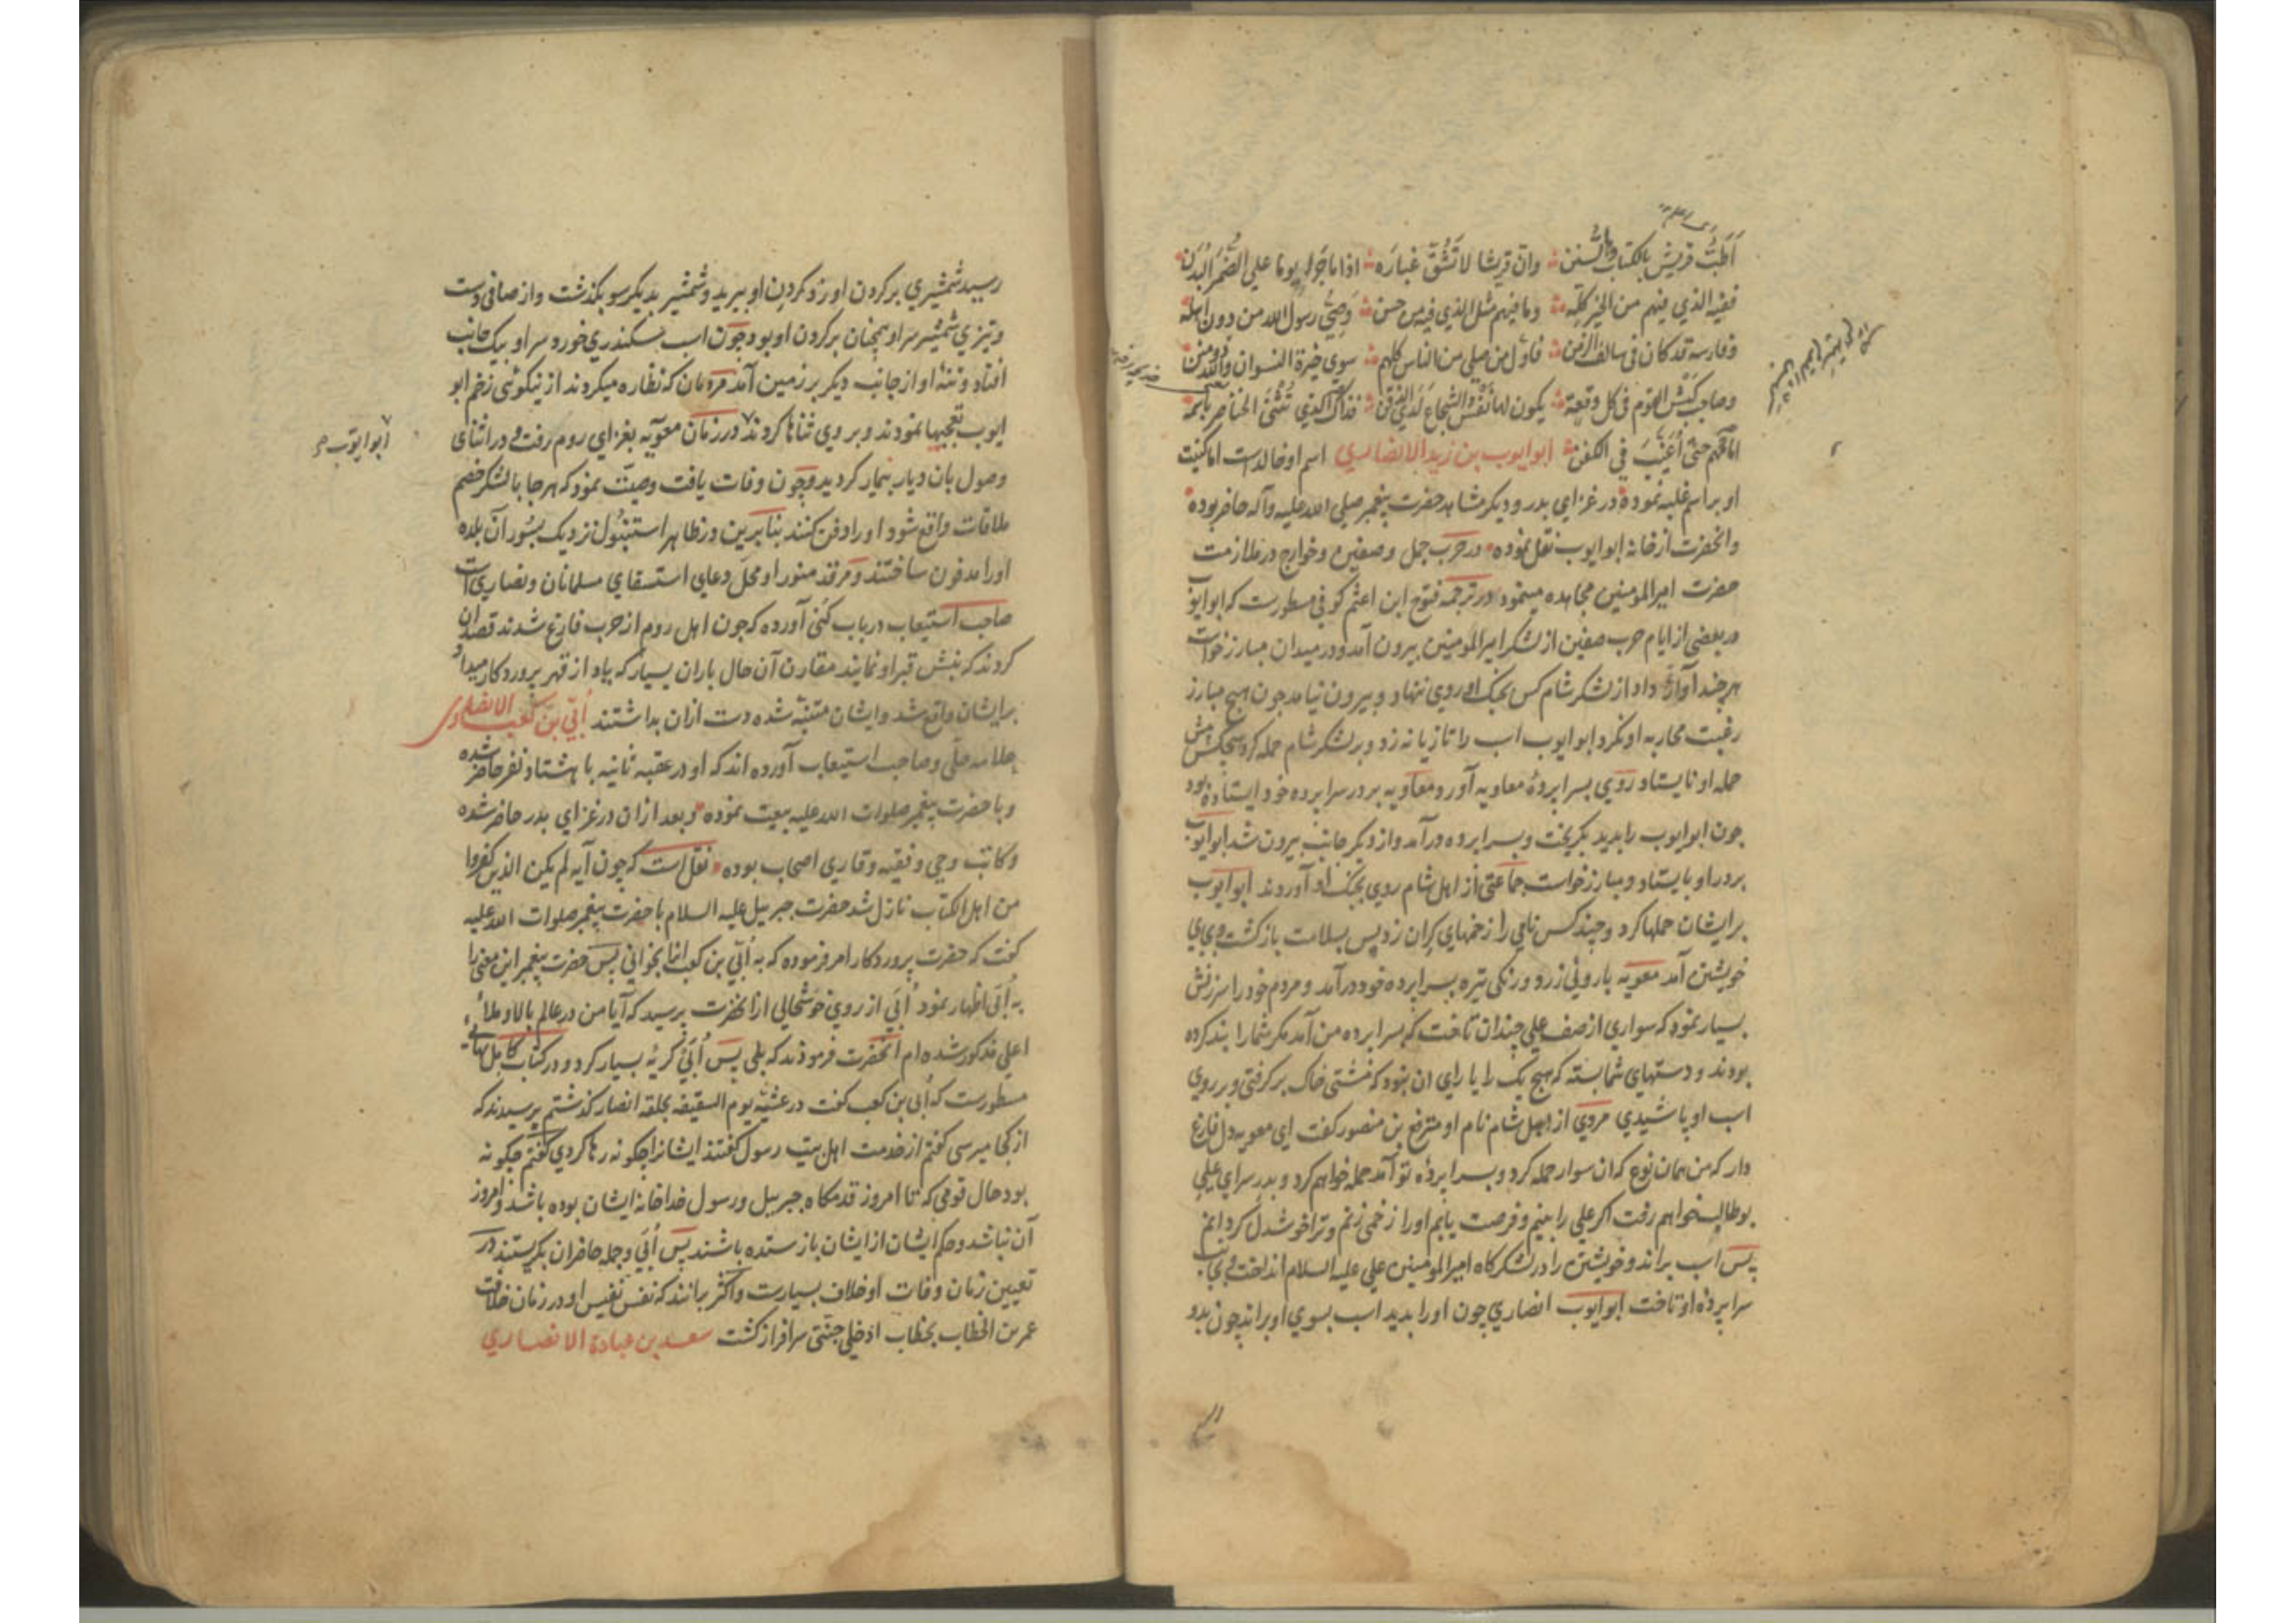 اَطَبُّ قریش بالکتاب وبالسنن وان قریشا لا تَشُقّ غبارَه اذا ما جَرَوا یوما علی الضُمَّر البُدُن
ففیه الذی فیهم من الخیر کلّه وما فیهم مثل الذی فیه من حسن وَصِیُّ رسول الله من دون اهله
وفارسه قد کان فی سالف الزمن فاوّل من صلی من الناس کلهم سوی خیرة النسوان والله ذو منن
وصاحب کَبْش القوم فی کل وقعة یکون لها نفس الشجاع لدی الذقن فذاک الذی تُثْنَی الخناصر باسمه
امامهم حتی اُغَیَّبَ فی الکفن ابو ایوب بن زید الانصاری اسم او خالدست اما کنیت
او بر اسم غلبه نموده در غزای بدر و دیکر مشاهد حضرت پیغمبر صلی الله علیه وآله حاضر بوده
وانحضرت از خانه ابو ایوب نقل نموده در حرب جمل وصفین وخوارج در ملازمت
حضرت امیرالمومنین مجاهده مینمود ودر ترجمه فتوح ابن اعثم کوفی مسطورست که ابو ایوب
در بعضی از ایام حرب صفین از لشکر امیرالمومنین بیرون آمد ودر میدان مبارز خواست
هر چند آواز داد از لشکر شام کس بجنک او روی ننهاد وبیرون نیامد چون هیچ مبارز
رغبت محاربه او نکرد ابو ایوب اسب را تازیانه زد وبر لشکر شام حمله کرد هیچکس پیش
حمله او نایستاد روی بسراپردهٔ معاویه آورد ومعاویه بر در سراپرده خود ایستاده بود
چون ابو ایوب را بدید بکریخت وبسراپرده درآمد واز دیکر جانب بیرون شد ابو ایوب
بر در او بایستاد ومبارز خواست جماعتی از اهل شام روی بجنک او آوردند ابو ایوب
بر ایشان حملها کرد وچند کس نامی را زخمهای کران زد پس بسلامت بازکشت وبجای
خویشتن آمد معویه با رویی زرد ورنکی تیره بسراپرده خود درآمد ومردم خود را سرزنش
بسیار نمود که سواری از صف علی چندان تاخت که بسراپرده من آمد مکر شما را بند کرده
بودند ودستهای شما بسته که هیچ یک را یارای آن نبود که مشتی خاک برکرفتی وبر روی
اسب او پاشیدی مردی از اهل شام نام او مترفع بن منصور کفت ای معویه دل فارغ
دار که من همان نوع که آن سوار حمله کرد وبسراپردهٔ تو آمد حمله خواهم کرد وبدر سرای علی
بو طالب خواهم رفت اکر علی را بینم وفرصت یابم او را زخمی زنم وترا خوشدل کردانم
پس اسب براند وخویشتن را در لشکرکاه امیرالمومنین علی علیه السلام انداخت وبجانب
سراپردهٔ او تاخت ابو ایوب انصاری چون او را بدید اسب بسوی او براند چون بدو
رسید شمشیری بر کردن او زد کردن او ببرید وشمشیر بدیکر سو بکذشت واز صافی دست
وتیزی شمشیر سر او همچنان بر کردن او بود چون اسب سکندری خورد سر او بیک جانب
افتاد وتنهٔ او از جانب دیکر بر زمین آمد مردمان که نظاره میکردند از نیکوئی زخم ابو
ایوب تعجبها نمودند وبر وی ثناها کردند ودر زمان معویه بغزای روم رفت ودر اثنای
ابو ایوب
وصول بان دیار بیمار کردید وچون وفات یافت وصیت نمود که هرجا با لشکر خصم
ملاقات واقع شود او را دفن کنند بنابرین در ظاهر استنبول نزدیک بسُور آن بلده
او را مدفون ساختند ومرقد منور او محل دعای استسقای مسلمانان ونصاری است
صاحب استیعاب در باب کُنی آورده که چون اهل روم از حرب فارغ شدند قصد آن
کردند که نبش قبر او نمایند مقارن آن حال باران بسیار که یاد از قهر پروردکار میداد
بر ایشان واقع شد وایشان متنبّه شده دست ازان بداشتند اُبَیّ بن کعب الانصاری
علامه حلی وصاحب استیعاب آورده اند که او در عقبه ثانیه با هشتاد نفر حاضر شده
وبا حضرت پیغمبر صلوات الله علیه بیعت نموده وبعد ازان در غزای بدر حاضر شده
وکاتب وحی وفقیه وقاری اصحاب بوده نقل است که چون آیه لم یکن الذین کفروا
من اهل الکتاب نازل شد حضرت جبرییل علیه السلام با حضرت پیغمبر صلوات الله علیه
کفت که حضرت پروردکار امر فرموده که به اُبَیّ بن کعب انرا بخوانی پس حضرت پیغمبر این معنی را
به اُبَیّ اظهار نمود اُبَیّ از روی خوشحالی ازانحضرت پرسید که آیا من در عالم بالا وملأ
اعلی مذکور شده ام انحضرت فرمودند که بلی پس اُبَیّ کریهٔ بسیار کرد ودر کتاب کامل بهائی
مسطورست که اُبی بن کعب کفت در عشیّه یوم السقیفه بحلقه انصار کذشتم پرسیدند که
از کجا میرسی کفتم از خدمت اهل بیت رسول کفتند ایشانرا چکونه رها کردی کفتم چکونه
بود حال قومی که تا امروز قدمکاه جبرییل ورسول خدا خانه ایشان بوده باشد وامروز
آن نباشد وحکم ایشان از ایشان بازستده باشند پس اُبَیّ وجمله حاضران بکریستند در
تعیین زمان وفات او خلاف بسیارست واکثر برانند که نفس نفیس او در زمان خلافت
عمر بن الخطاب بخطاب ادخلی جنتی سرافراز کشت سعد بن عبادة الانصاری